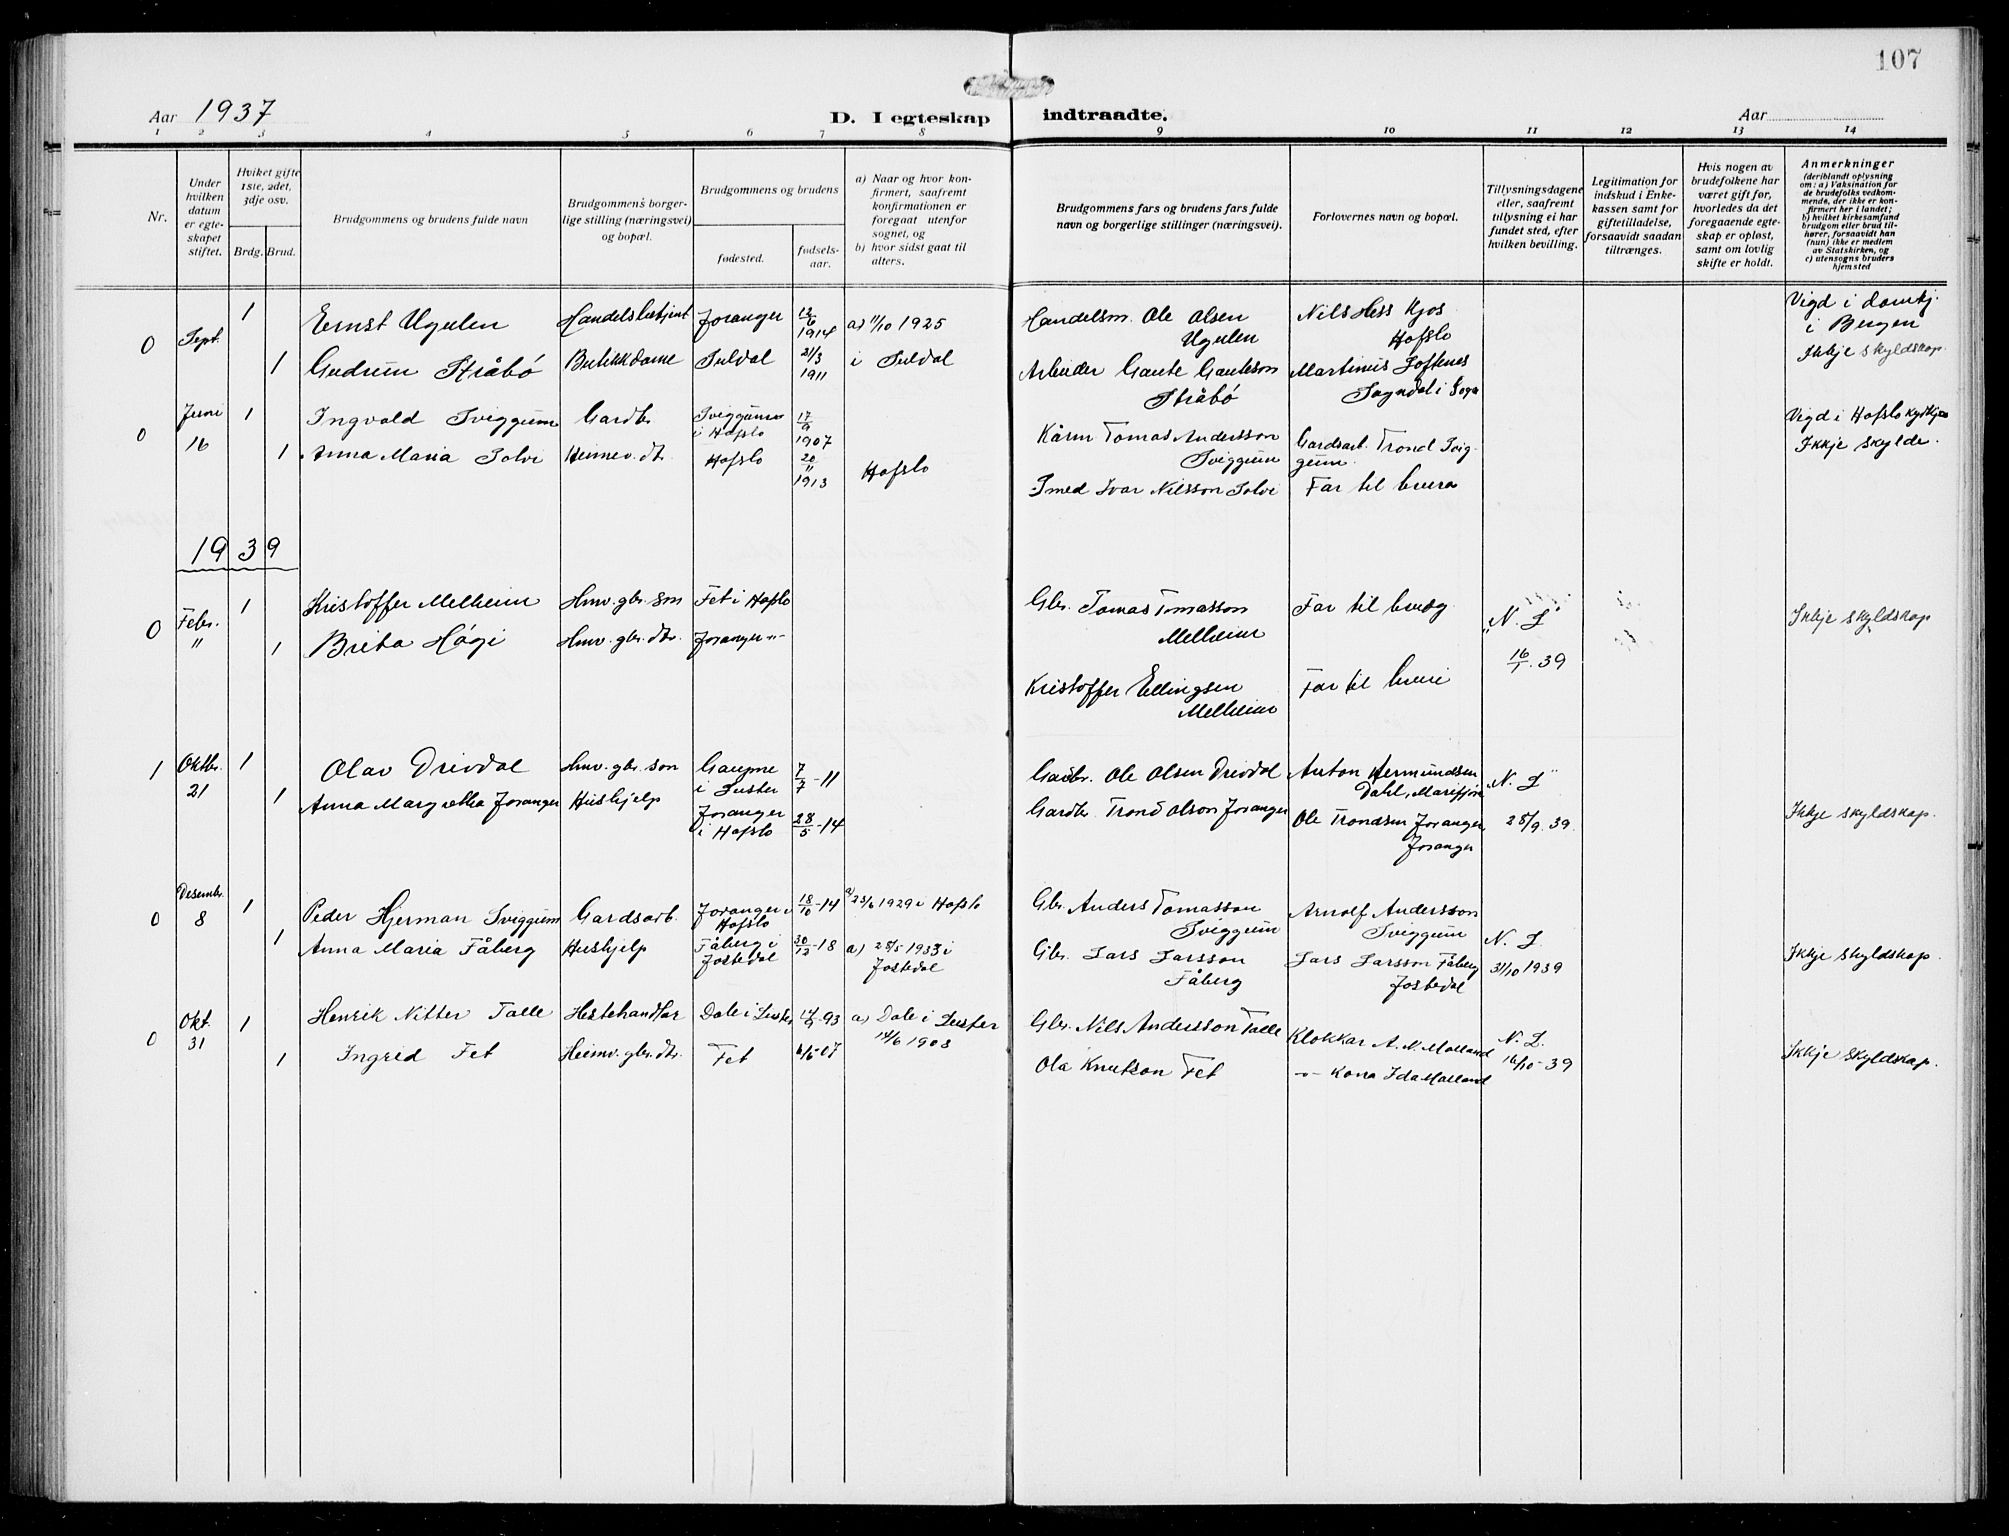 107
Aar 1937
D. I egteskap indtraadte.
Aar
1 2 3 4 5 6 7 8 9 10 11 12 13 14
Nr.
Under hvilken datum er egteskapet stiftet.
Hviket gifte 1ste, 2det, 3dje osv.
Brdg. Brud.
Brudgommens og brudens fulde navn
Brudgommens borgerlige stilling (næringsvei) og bopæl.
Brudgommens og brudens
fødested.
fødselsaar.
a) Naar og hvor konfirmert, saafremt konfirmationen er foregaat utenfor sognet, og
b) hvor sidst gaat til alters.
Brudgommens fars og brudens fars fulde navn og borgerlige stillinger (næringsvei).
Forlovernes navn og bopæl.
Tillysningsdagene eller, saafremt tillysning ei har fundet sted, efter hvilken bevilling.
Legitimation for indskud i Enkekassen samt for giftetilladelse, forsaavidt saadan tiltrænges.
Hvis nogen av brudefolkene har været gift før, hvorledes da det foregaaende egteskap er opløst, samt om lovlig skifte er holdt.
Anmerkninger (deriblandt oplysning om: a) Vaksination for de brudefolks vedkommende, der ikke er konfirmert her i landet; b) hvilket kirkesamfund brudgom eller brud tilhører, forsaavidt han (hun) ikke er medlem av Statskirken, og c) utensogns bruders hjemsted
0 Sept. 1 Ernst Ugulen Handelsbetjent Joranger 12/6 1914 a) 11/10 1925 Handelsm. Ole Olsen Ugulen Nils Hess Kjos Hafslo Vigd i domkj. i Bergen
1 Gudrun Stråbó Butikkdame Suldal 21/3 1911 i Suldal Arbeider Gaute Gauteson Stråbó Martinus Loftenes Sogndal i Sogn Ikkje skyldskap.
0 Juni 16 1 Ingvald Sviggum Gardbr. Sviggum i Hafslo 17/9 1907 Kårm Tomas Andersson Sviggum Gardsarb. Trond Sviggum. Vigd i Hafslo
1 Anna Maria Solvi Heimev. dtr. Hafslo 20/11 1913 Hafslo Smed Ivar Nilsson Solvi Far til brura Ikkje skylde.
1939
0 Febr. " 1 Kristoffer Melheim Hmv. gbr. son Fet i Hafslo Gbr. Tomas Tomasson Melheim Far til brudg. "N. L" Ikkje skyldskap
1 Brita Högi Hmv. gbr. dtr. Joranger -"- Kristoffer Ellingsen Melheim Far til bruri 16/1. 39
1 Oktbr. 21 1 Olav Drivdal Hmv. gbr. son Gaupne i Luster 7/7 - 11 Gardbr. Ole Olsen Drivdal Anton Hermundsen Dahl, Marifjøra "N. L"
1 Anna Margretha Joranger Hushjelp Joranger i Hafslo 28/5 - 14 Gardbr. Trond Olson Joranger Ole Trondsen Joranger, Joranger 28/9. 39. Ikkje skyldskap.
0 Desembr. 8 1 Peder Hjerman Sviggum Gardsarb. Joranger i Hafslo 18/10 - 14 a) 23/6 1929 i Hafslo Gbr. Anders Tomasson Sviggum Arnolf Andersson Sviggum N. L.
1 Anna Maria Fåberg Hushjelp Fåberg i Jostedal 30/12 - 18 a) 28/5 1933 i Jostedal Gbr. Lars Larsson Fåberg Lars Larsson Fåberg Jostedal 31/10 1939 Ikkje skyldskap.
0 Okt. 31 1 Henrik Nitter Talle Hestehandlar Dale i Luster 14/9 - 93 a) Dale i Luster 14/6 1908 Gbr. Nils Andersson Talle Klokkar A. N. Molland N. L.
1 Ingrid Fet Heimv. gbr. dtr. Fet 6/6 - 07 Ola Knutson Fet -"- Kona Ida Molland 16/10 - 39 Ikkje skyldskap.